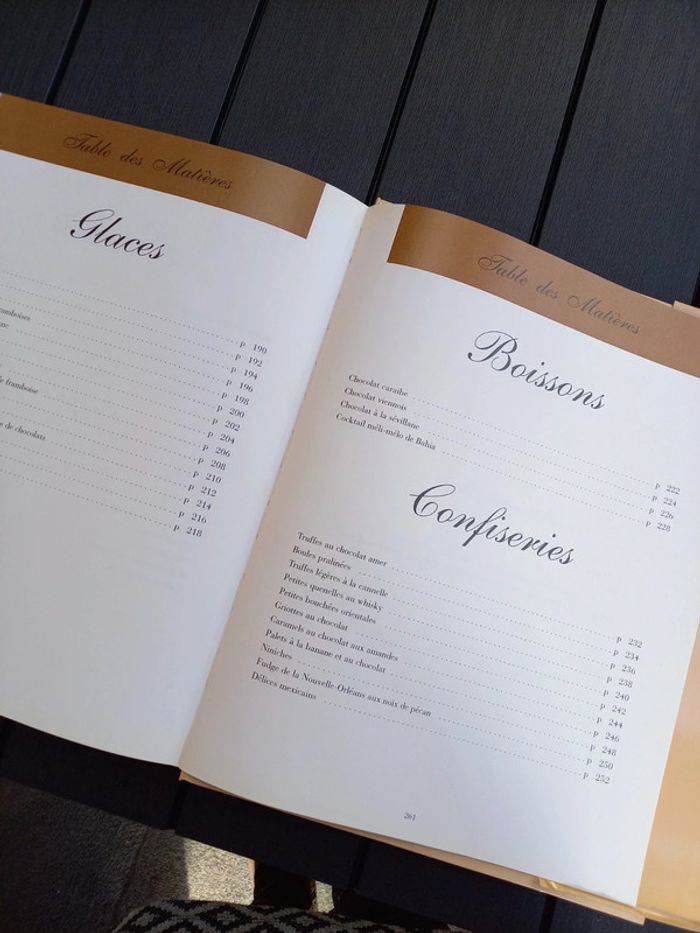 Table des Matières
Glaces
p 190
framboises p 192
p 194
p 196
p 198
framboise p 200
p 202
p 204
de chocolats p 206
p 208
p 210
p 212
p 214
p 216
p 218
Table des Matières
Boissons
Chocolat caraïbe p 222
Chocolat viennois p 224
Chocolat à la sévillane p 226
Cocktail méli-mélo de Bahia p 228
Confiseries
Truffes au chocolat amer p 232
Boules pralinées p 234
Truffes légères à la cannelle p 236
Petites quenelles au whisky p 238
Petites bouchées orientales p 240
Griottes au chocolat p 242
Caramels au chocolat aux amandes p 244
Palets à la banane et au chocolat p 246
Niniches p 248
Fudge de la Nouvelle-Orléans aux noix de pécan p 250
Délices mexicains p 252
261